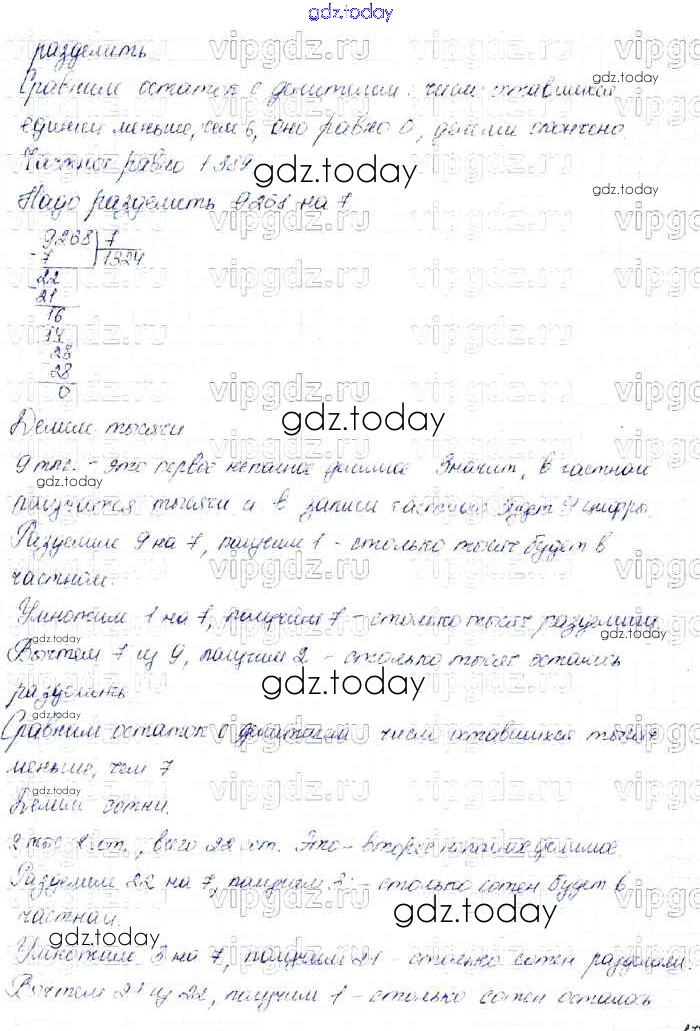 gdz.today
разделить
Сравним остаток с делителем: число оставшихся
единиц меньше, чем 6, оно равно 0, деление окончено.
Частное равно
Надо разделить 9268 на 7
9268 7
- 7 1324
22
21
16
14
28
28
0
Делим тысячи
9 тыс. - это первое неполное делимое Значит, в частном
получатся тысячи и в записи частного будет 4 цифры.
Разделим 9 на 7, получим 1 - столько тысяч будет в
частном.
Умножим 1 на 7, получим 7 - столько тысяч разделили
Вычтем 7 из 9, получим 2 - столько тысяч осталось
разделить
Сравним остаток с делителем число оставшихся тысяч
меньше, чем 7
Делим сотни.
2 тыс 2 сот., всего 22 сот. Это - второе неполное делимое.
Разделим 22 на 7, получим 3 - столько сотен будет в
частном.
Умножим 3 на 7, получим 21 - столько сотен разделили.
Вычтем 21 из 22, получим 1 - столько сотен осталось